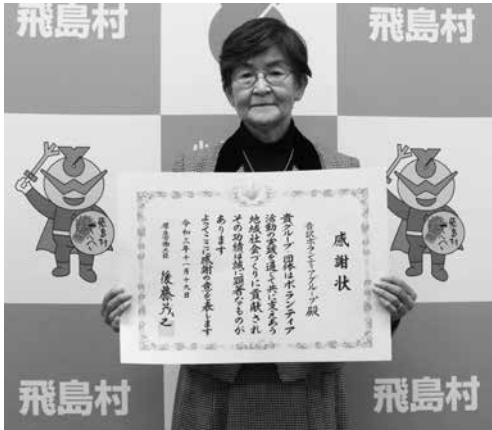 飛島村
飛島村
感謝状
音訳ボランティアグループ 殿
貴グループ 団体はボランティア
活動の実践を通して共に支えあう
地域社会づくりに貢献され
その功績は誠に顕著なものが
あります
よってここに感謝の意を表します
令和三年十一月十九日
厚生労働大臣 後藤茂之
飛島村
飛島村